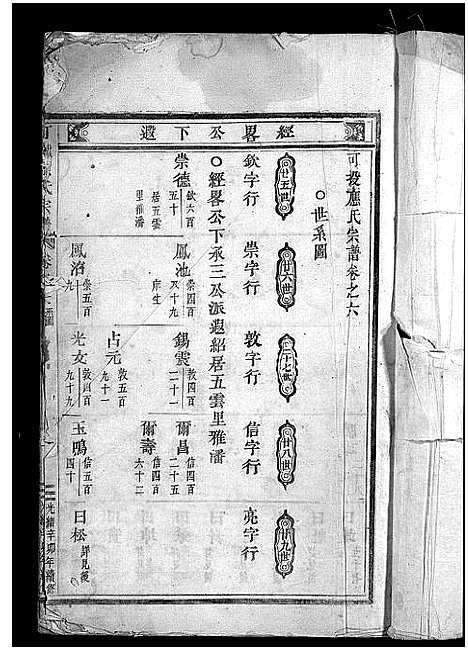 經畧公下遐
可投應氏宗譜卷之六
世系圖
廿五世
廿六世
二十七世
廿八世
廿九世
欽字行
崇字行
敦字行
信字行
亮字行
經畧公下承三公派遐紹居五雲里雅潘
崇德
欽六百
五十
居五雲
里雅潘
鳳池
崇四百
双十九
庠生
錫雲
敦四百
二十一
爾昌
信四百
二十五
爾壽
信四百
六十二
占元
敦五百
十一
鳳沼
崇五百
九
光文
敦四百
九十九
玉鳴
信五百
四十
日松
詳見後
光緒辛卯年續修